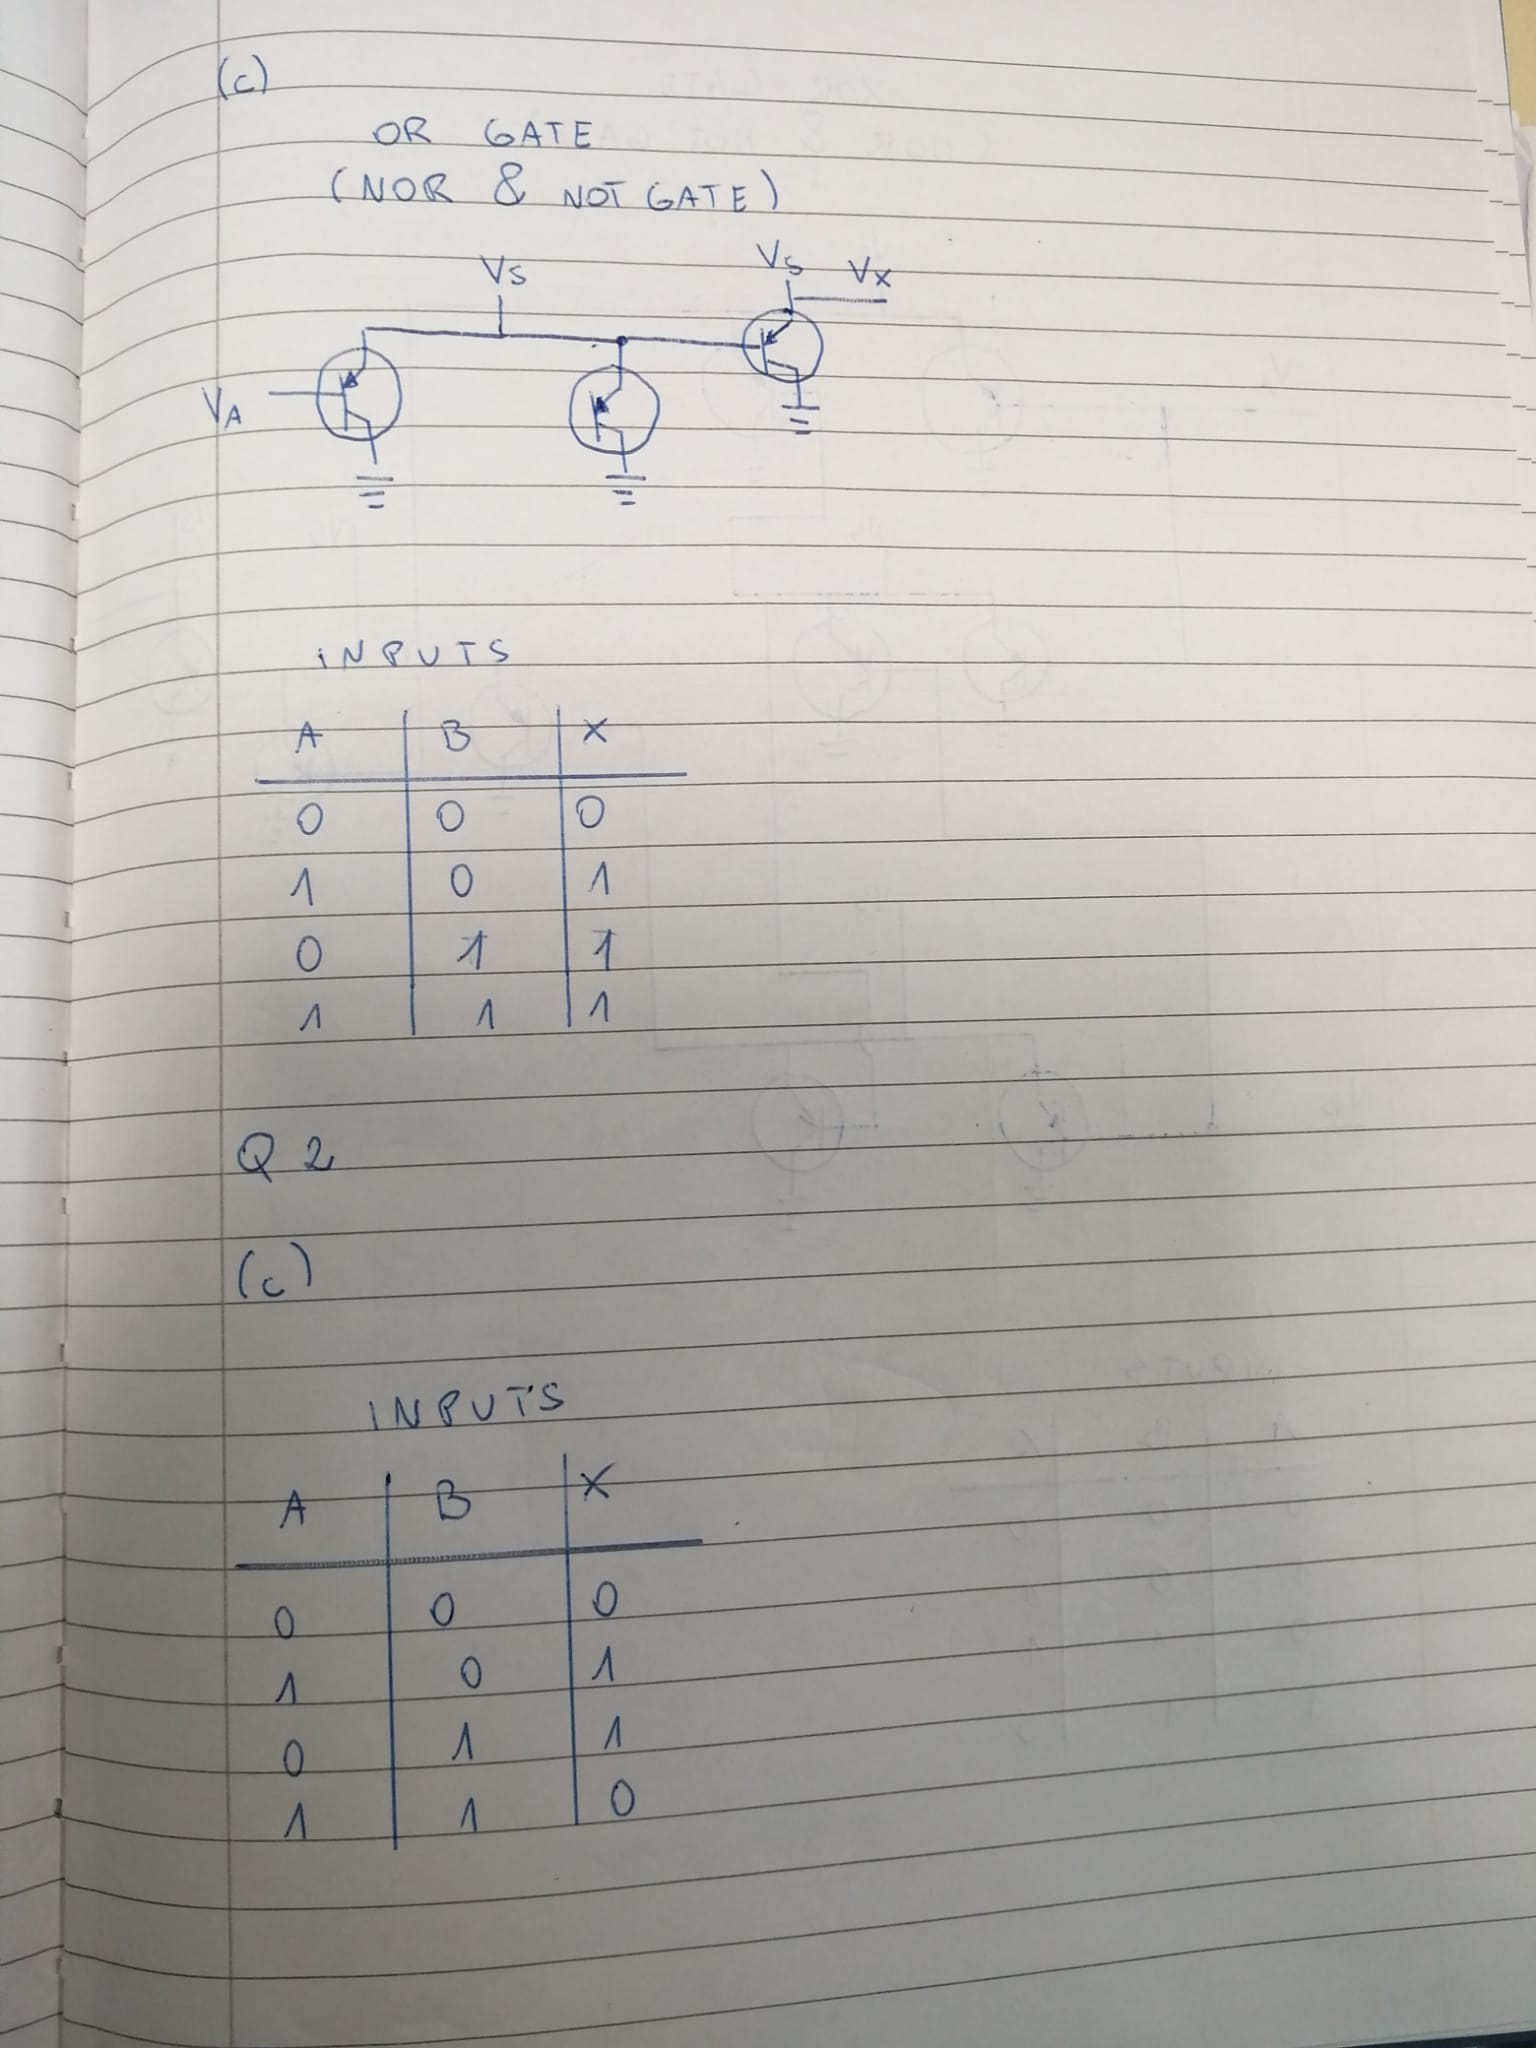 (c)
OR GATE
(NOR & NOT GATE)
VS
VS VX
VA
INPUTS
A B X
0 0 0
1 0 1
0 1 1
1 1 1
Q 2
(c)
INPUTS
A B X
0 0 0
1 0 1
0 1 1
1 1 0